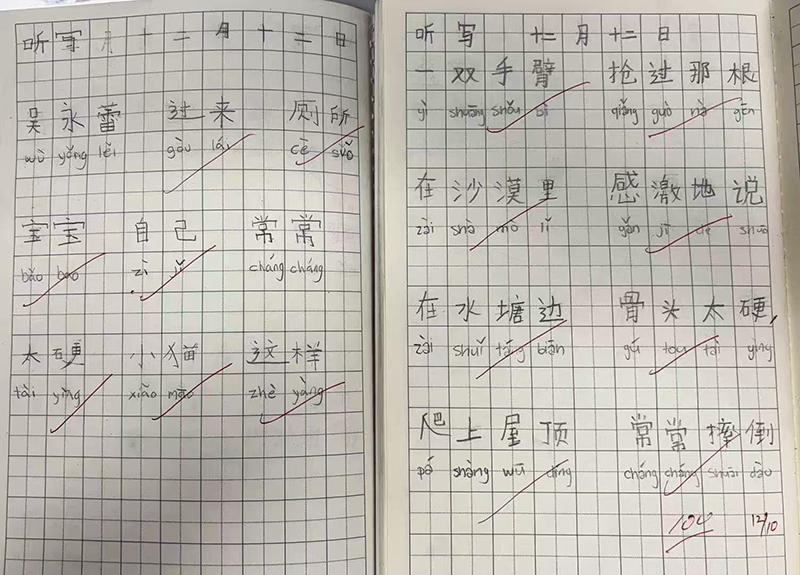 听写 月十二月十二日
吴永蕾 过来 厕所
wú yǒng lěi gàu lái cè suǒ
宝宝 自己 常常
bǎo bao zì jǐ cháng cháng
太硬 小猫 这样
tài yìng xiǎo māo zhè yàng
听写 十二月十二日
一双手臂 抢过那根
yì shuāng shǒu bì qiǎng guò nà gēn
在沙漠里 感激地说
zài shā mò lǐ gǎn jī de shuō
在水塘边 骨头太硬,
zài shuǐ táng biān gú tou tài yìng
爬上屋顶 常常摔倒
pá shàng wū dǐng cháng cháng shuāi dǎo
104 12/10